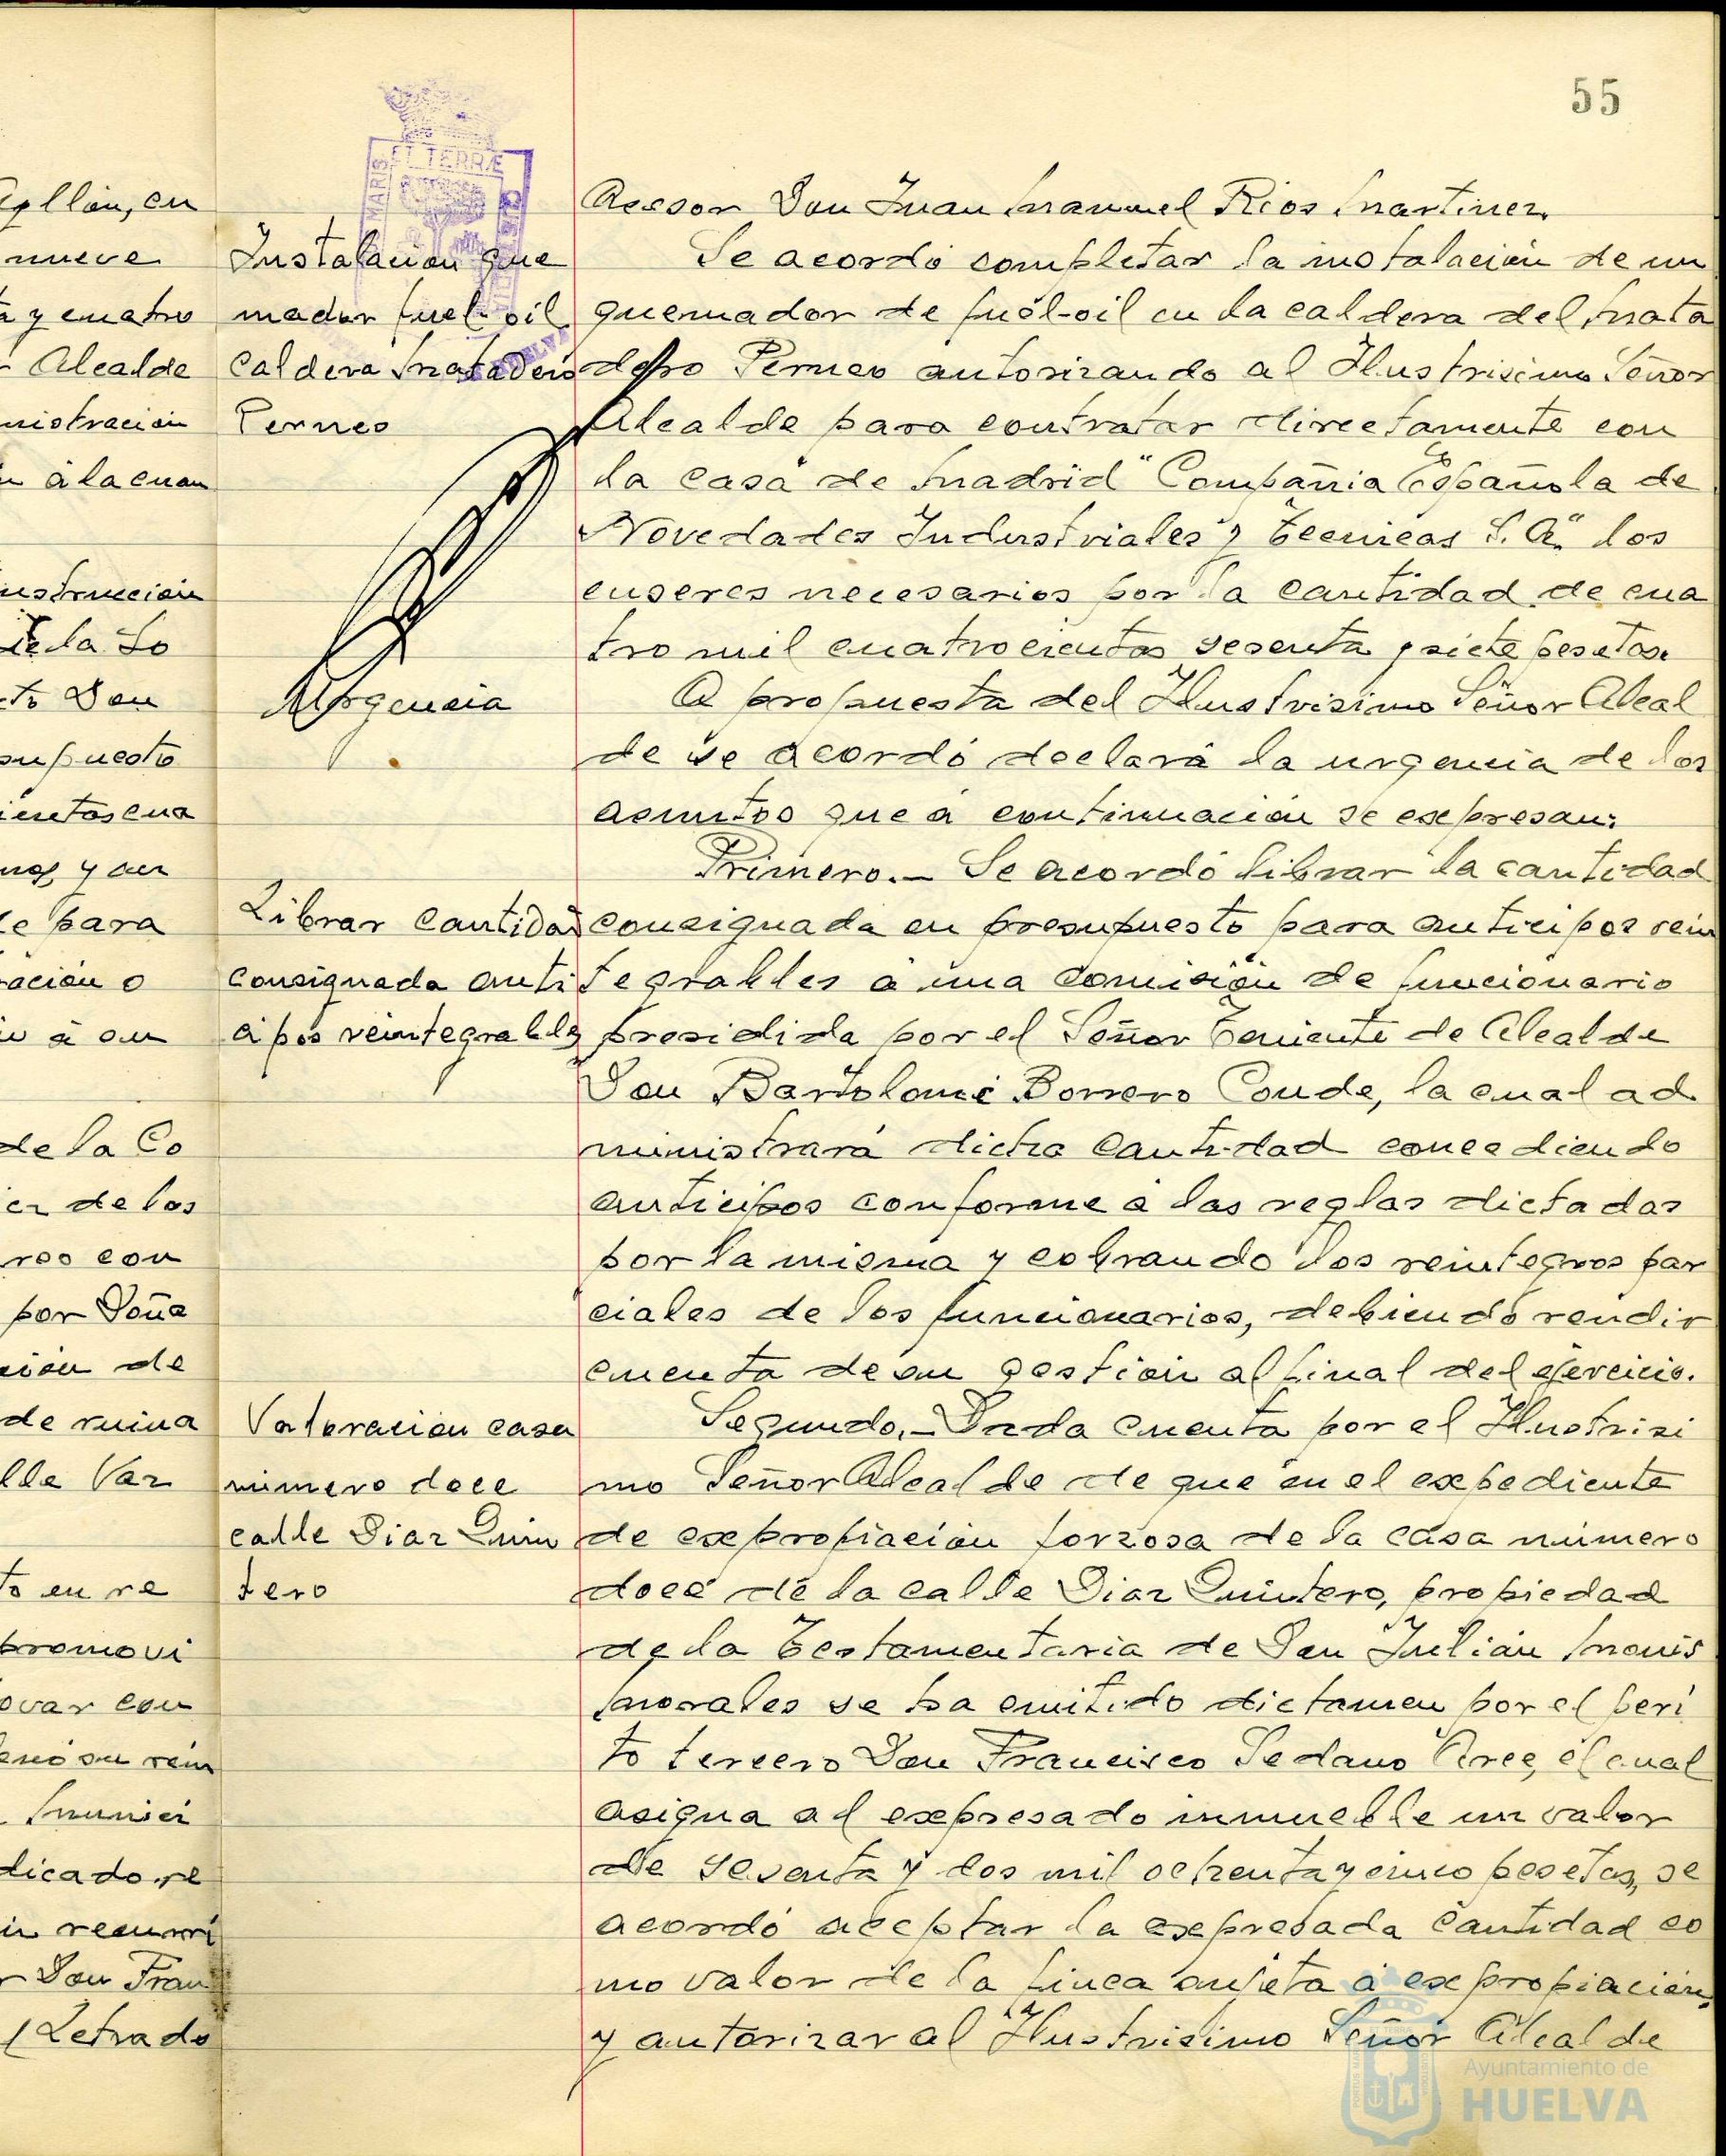 55
Asesor Don Juan Manuel Rios Martinez.
Se acordó completar la instalación de un
quemador de fuel-oil en la caldera del Mata
dero Perneo autorizando al Ilustrisimo Señor
Alcalde para contratar directamente con
la casa de Madrid "Compañia Española de
Novedades Industriales y Tecnicas S. A." los
enseres necesarios por la cantidad de cua
tro mil cuatrocientas sesenta y siete pesetas.
A propuesta del Ilustrisimo Señor Alcal
de se acordó declara la urgencia de los
asuntos que á continuación se expresan:
Primero.- Se acordó librar la cantidad
consignada en presupuesto para anticipos rein
tegrables á una comisión de funcionario
presidida por el Señor Teniente de Alcalde
Don Bartolomé Borrero Conde, la cual ad
ministrará dicha cantidad concediendo
anticipos conforme á las reglas dictadas
por la misma y cobrando los reintegros par
ciales de los funcionarios, debiendo rendir
cuenta de su gestión al final del ejercicio.
Segundo.- Dada cuenta por el Ilustrisi
mo Señor Alcalde de que en el expediente
de expropiación forzosa de la casa número
doce de la calle Diaz Quintero, propiedad
de la Testamentaria de Don Julián
Morales se ha emitido dictamen por el peri
to tercero Don Francisco Sedano Arce, el cual
asigna al expresado inmueble un valor
de sesenta y dos mil ochenta y cinco pesetas, se
acordó aceptar la expresada cantidad co
mo valor de la finca sujeta á expropiación,
y autorizar al Ilustrisimo Señor Alcalde
Instalación que
mador fuel-oil
caldera Matadero
Perneo
Urgencia
Librar cantidad
consignada anti
cipos reintegrables
Valoración casa
número doce
calle Diaz Quin
tero
en
nueve
y cuatro
Alcalde
nistración
á la cuan
nstrucción
de la So
Don
supuesto
cientas cua
y un
de para
ración o
á su
de la Co
de los
con
por Doña
ción de
de ruina
lle Vaz
to en re
promovi
ovar con
su rein
Munici
dicado re
recurri
Don Fran
Letrado
MARIS
ET TERRÆ
HUELVA
Ayuntamiento de
HUELVA